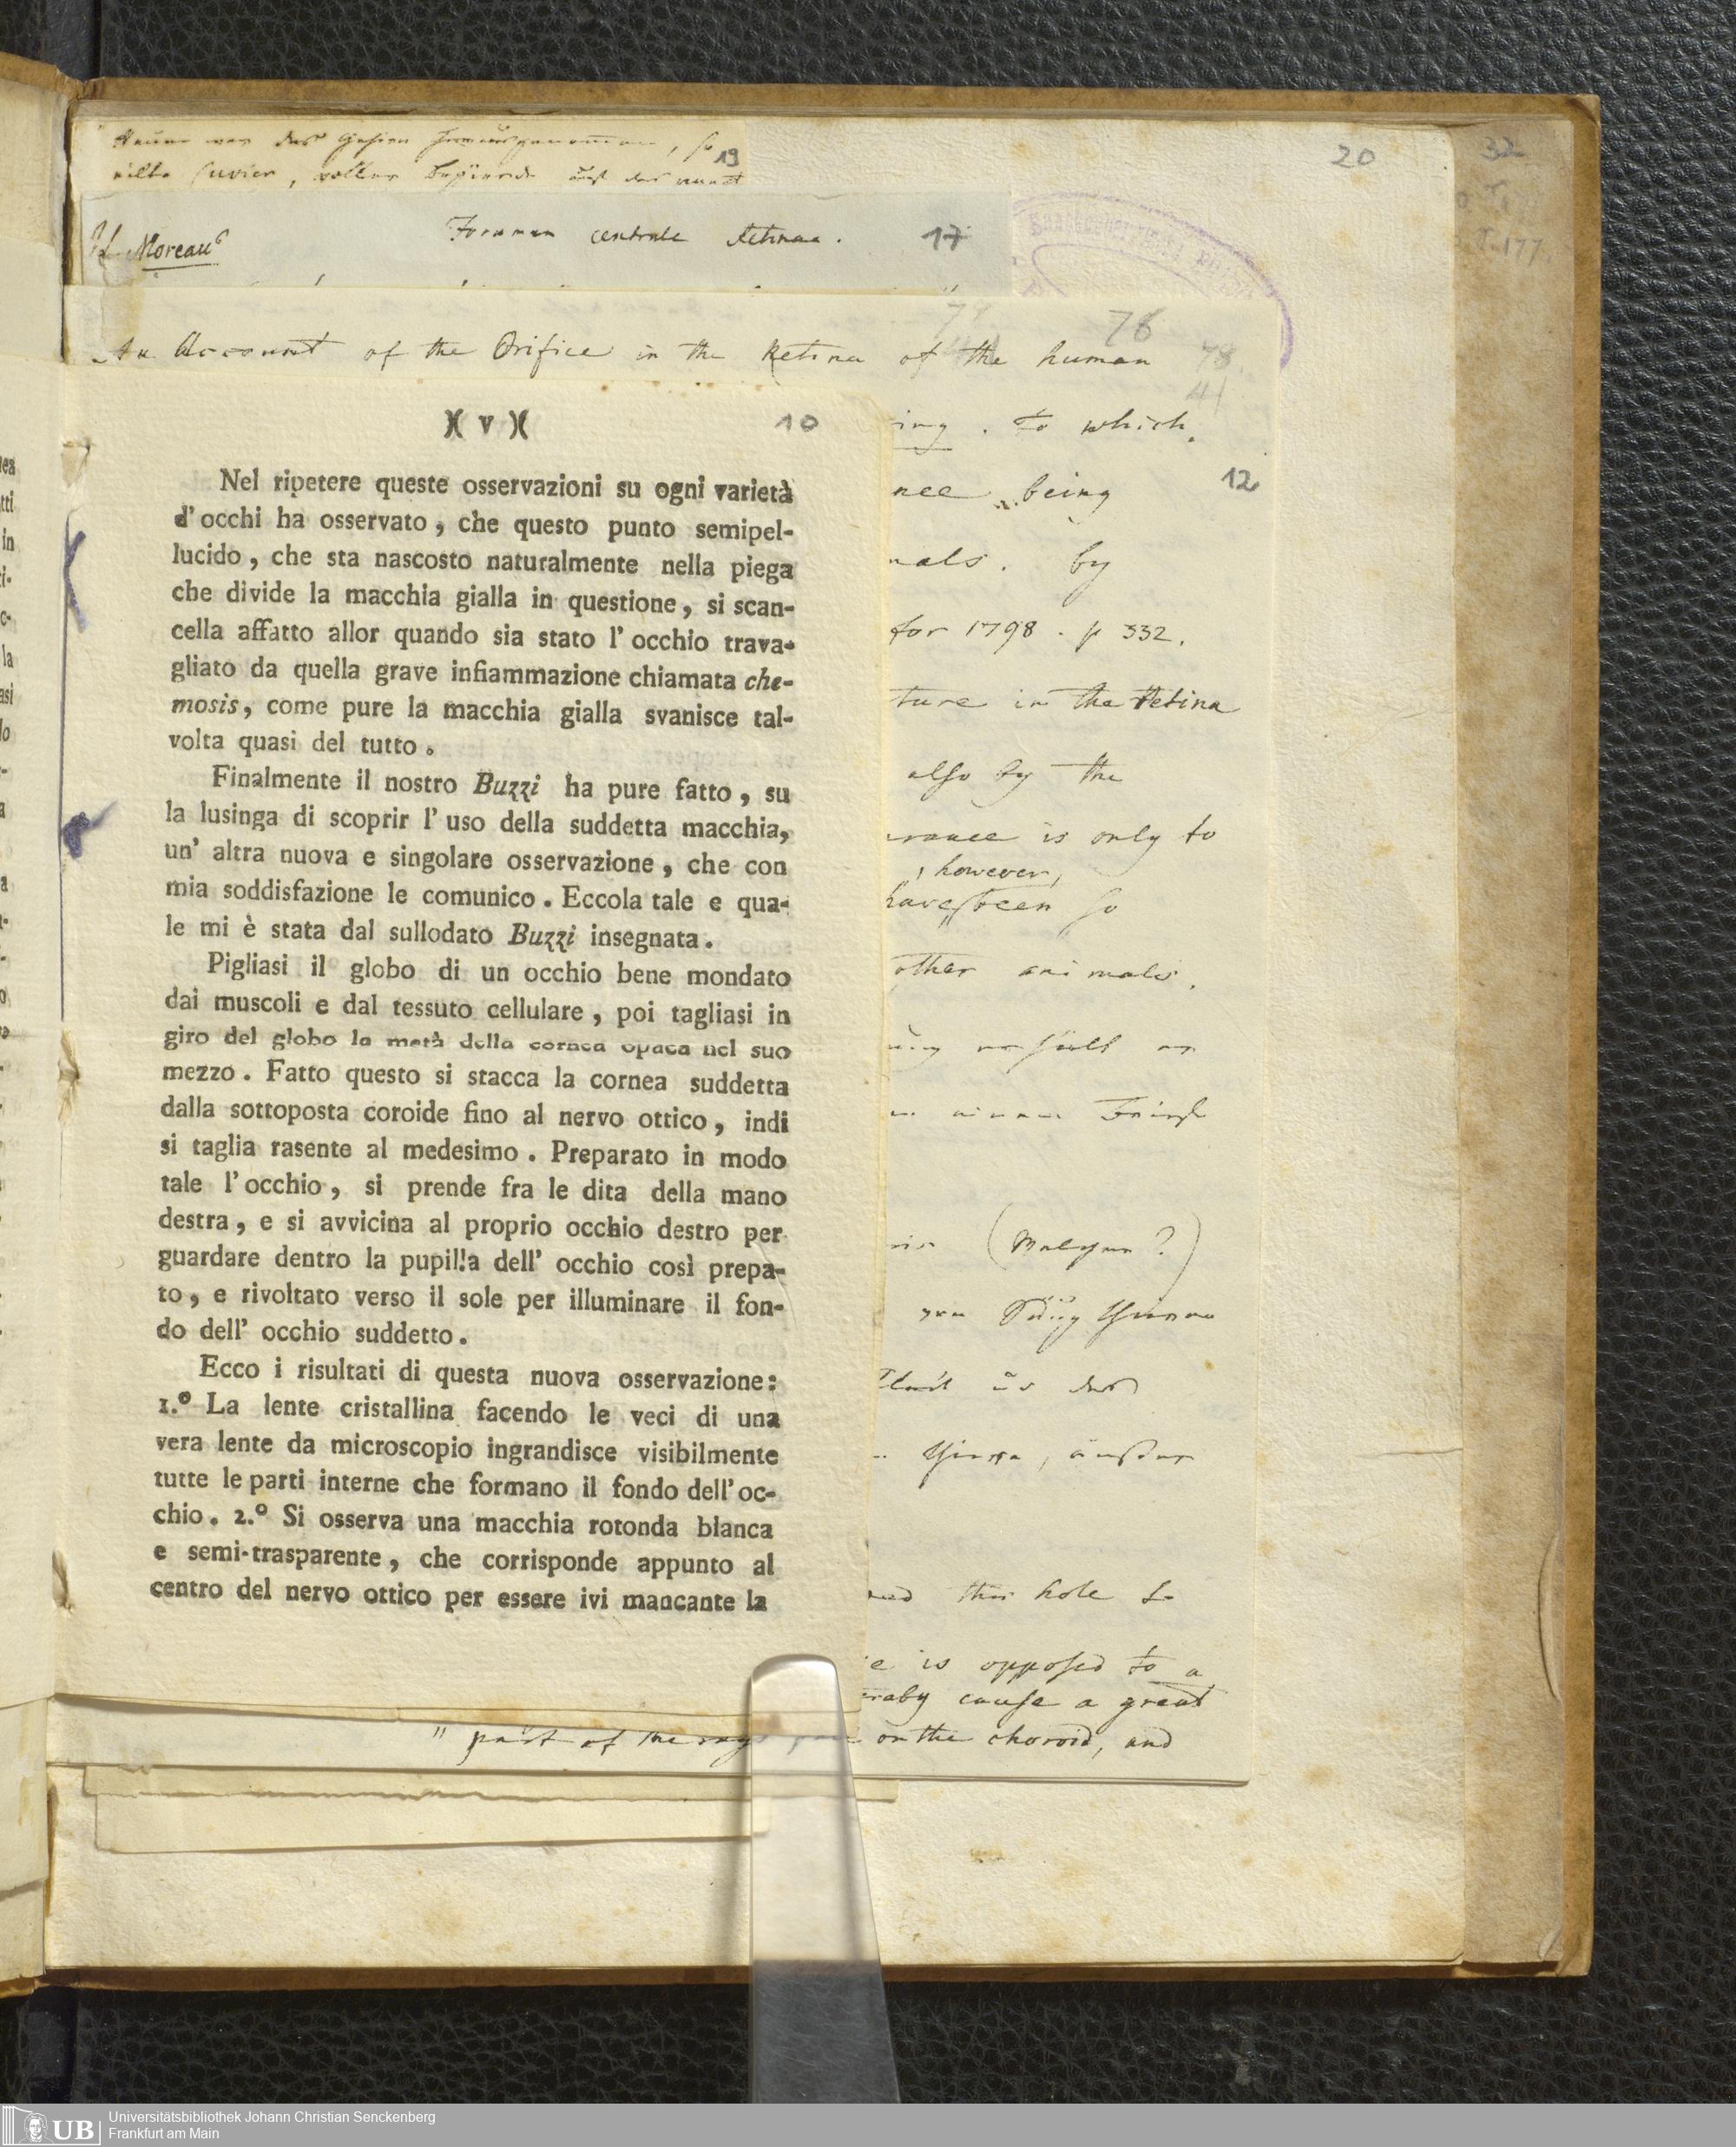 20
32
19
Cuvier
Moreau
Foramen centrale Retinae.
17
78
An Account of the Orifice in the Retina of the human
78.
41
ing. To which
12
nce being
mals. by
for 1798. p 332.
ture in the Retina
also by the
rance is only to
, however,
have been so
other animals.
this hole
is opposed to a
cause a great
" part of the rays on the choroid, and
)( v )(
10
Nel ripetere queste osservazioni su ogni varietà
d'occhi ha osservato, che questo punto semipel-
lucido, che sta nascosto naturalmente nella piega
che divide la macchia gialla in questione, si scan-
cella affatto allor quando sia stato l'occhio trava-
gliato da quella grave infiammazione chiamata che-
mosis, come pure la macchia gialla svanisce tal-
volta quasi del tutto.
Finalmente il nostro Buzzi ha pure fatto, su
la lusinga di scoprir l'uso della suddetta macchia,
un' altra nuova e singolare osservazione, che con
mia soddisfazione le comunico. Eccola tale e qua-
le mi è stata dal sullodato Buzzi insegnata.
Pigliasi il globo di un occhio bene mondato
dai muscoli e dal tessuto cellulare, poi tagliasi in
giro del globo la metà della cornea opaca nel suo
mezzo. Fatto questo si stacca la cornea suddetta
dalla sottoposta coroide fino al nervo ottico, indi
si taglia rasente al medesimo. Preparato in modo
tale l'occhio, si prende fra le dita della mano
destra, e si avvicina al proprio occhio destro per
guardare dentro la pupilla dell' occhio così prepa-
to, e rivoltato verso il sole per illuminare il fon-
do dell' occhio suddetto.
Ecco i risultati di questa nuova osservazione:
1.º La lente cristallina facendo le veci di una
vera lente da microscopio ingrandisce visibilmente
tutte le parti interne che formano il fondo dell'oc-
chio. 2.º Si osserva una macchia rotonda bianca
e semi-trasparente, che corrisponde appunto al
centro del nervo ottico per essere ivi mancante la
UB
Universitätsbibliothek Johann Christian Senckenberg
Frankfurt am Main